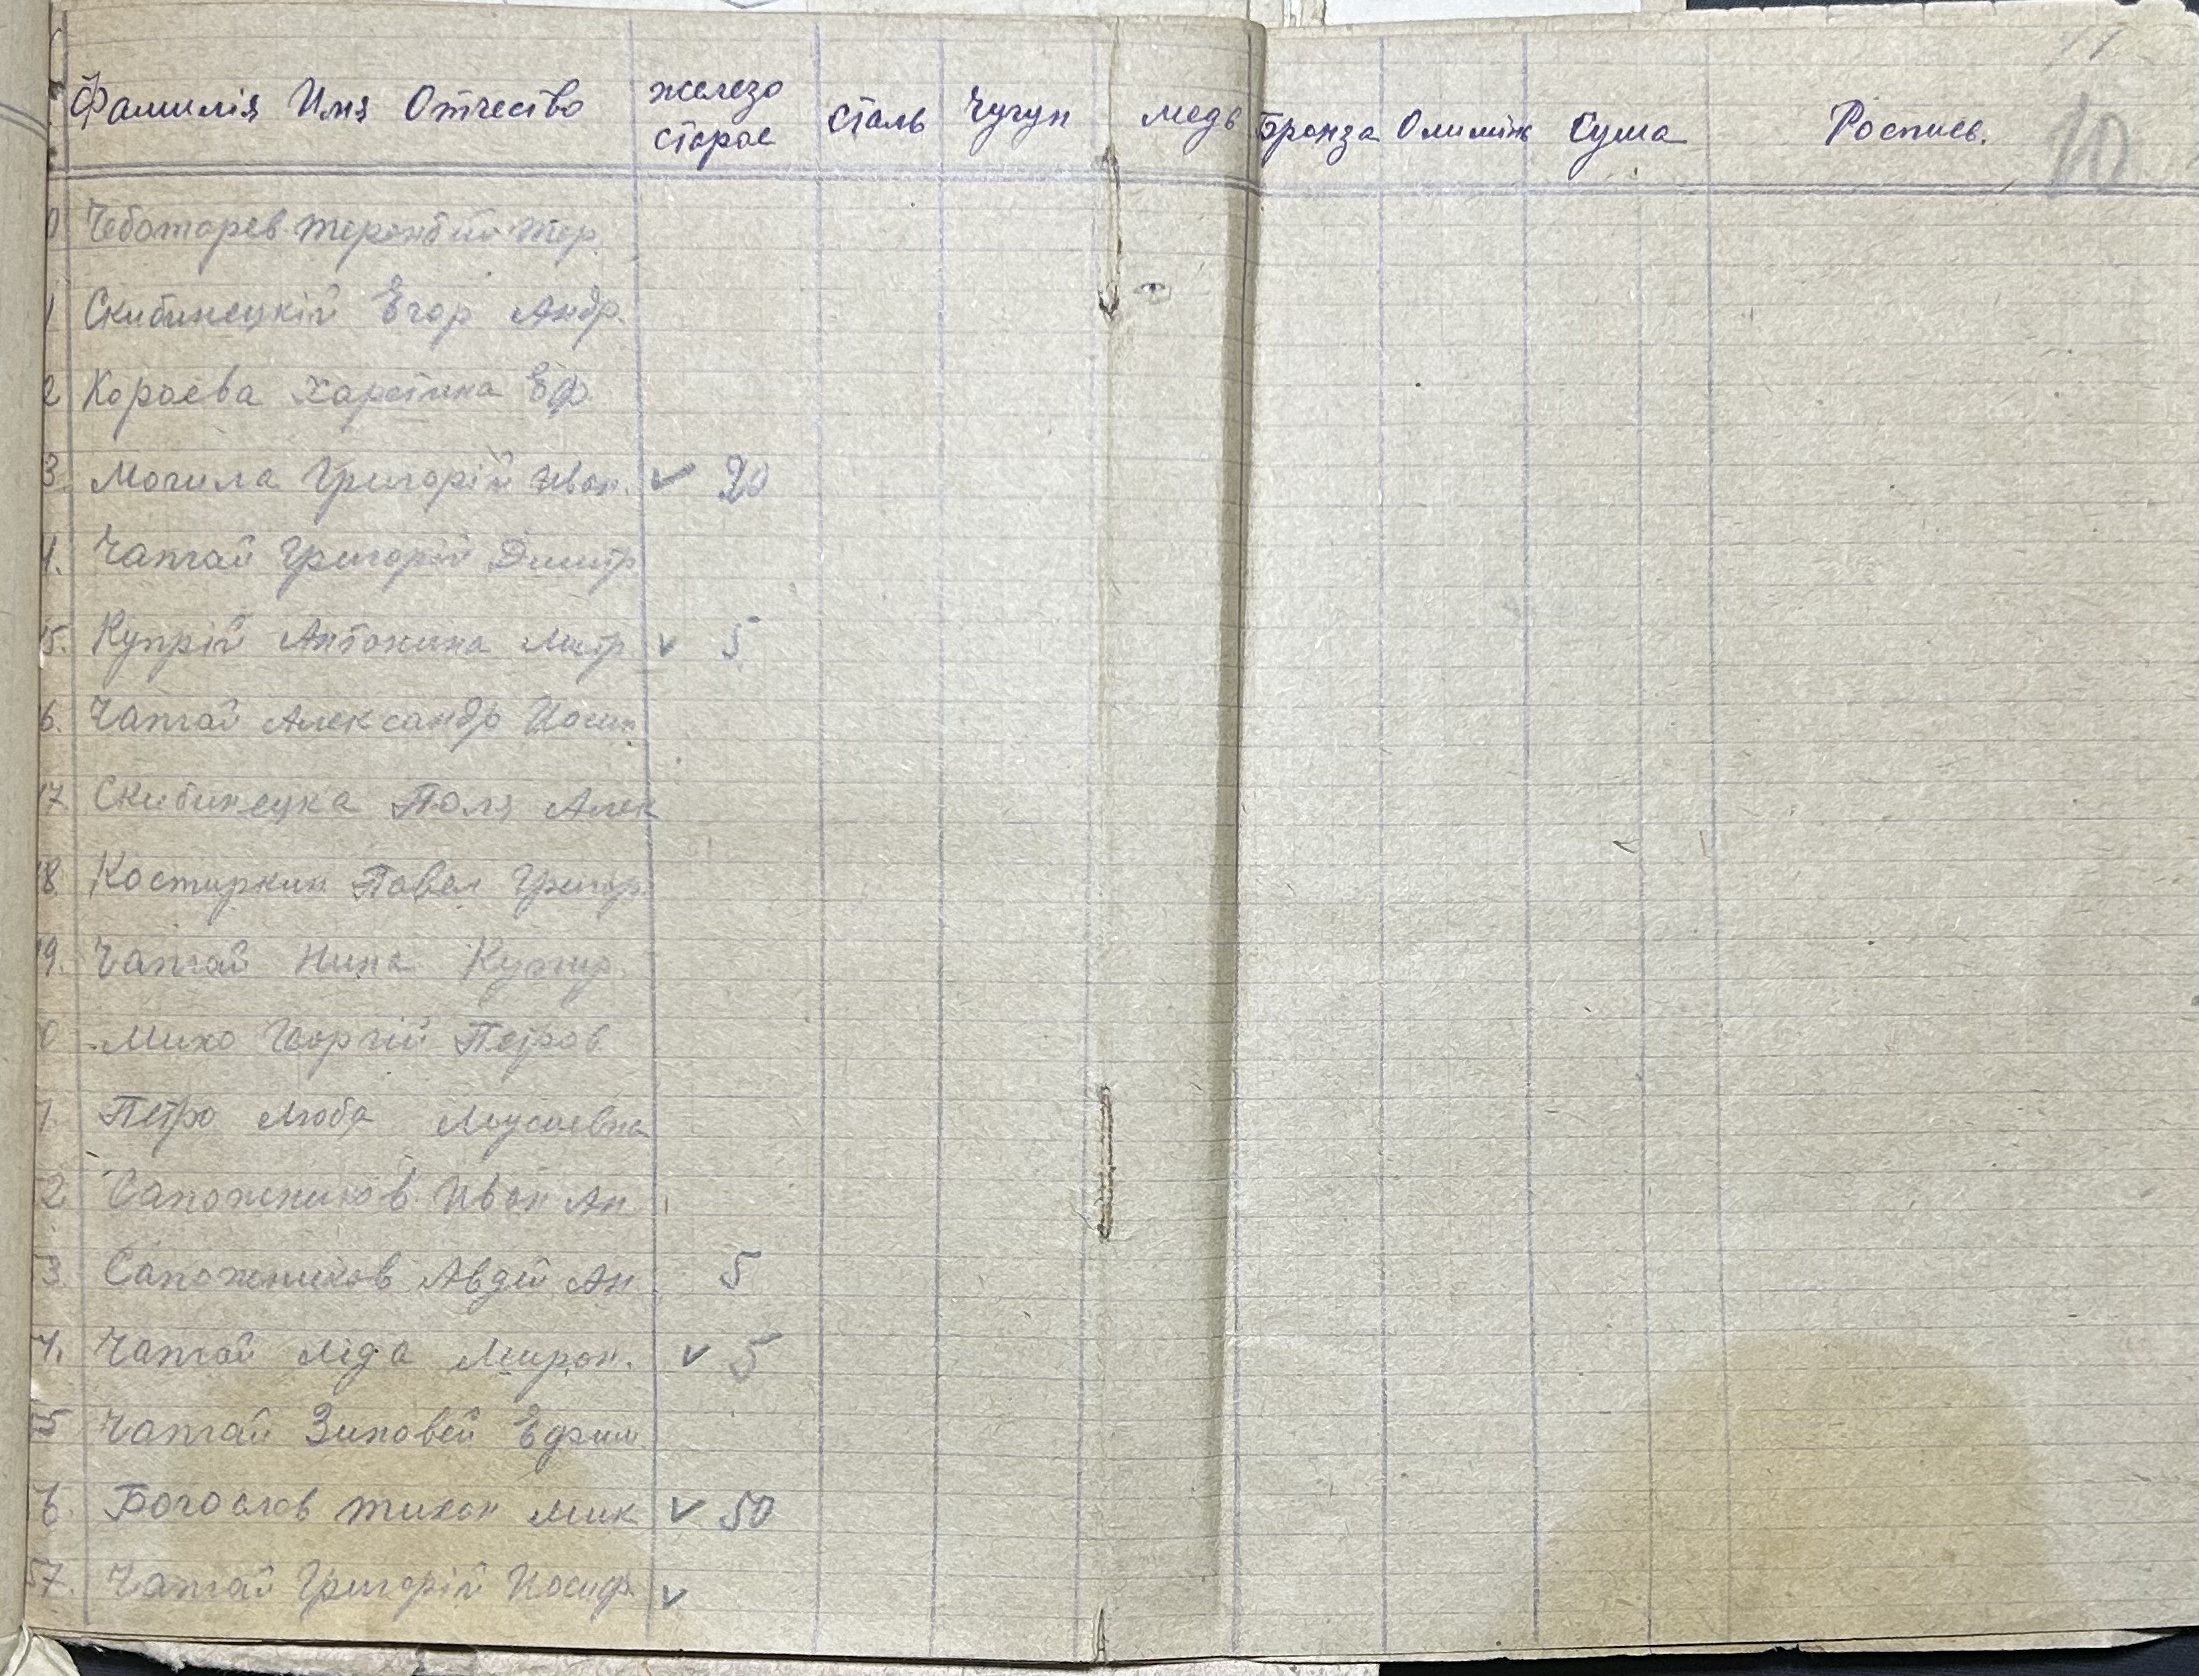 11
10
Фамилія Имя Отчество железо старое сталь чугун медь Бронза Олимін Сума Роспись.
0 Чеботарев Терентий Тер.
1 Скибинецкій Егор Андр.
2 Кораева Харетина Еф
3. Могила Григорій Иван. ✓ 20
4. Чапгай Григорій Дмитр
45. Купрій Антонина Митр. ✓ 5
6. Чапгай Александр Иосип
47 Скибинецка Поля Алек
48. Костиркин Павел Григор
49. Чапгай Нина
0 Михо Георгій Петров
1. Петро Люба Моусиевна
2 Сапожников Иван Ан
3. Сапожников Авдій Ан. 5
4. Чапгай Ліда Мирон. ✓ 5
55 Чапгай Зиновей Ефим
6. Богослов Тихон Мик ✓ 50
57. Чапгай Григорій Иосиф. ✓